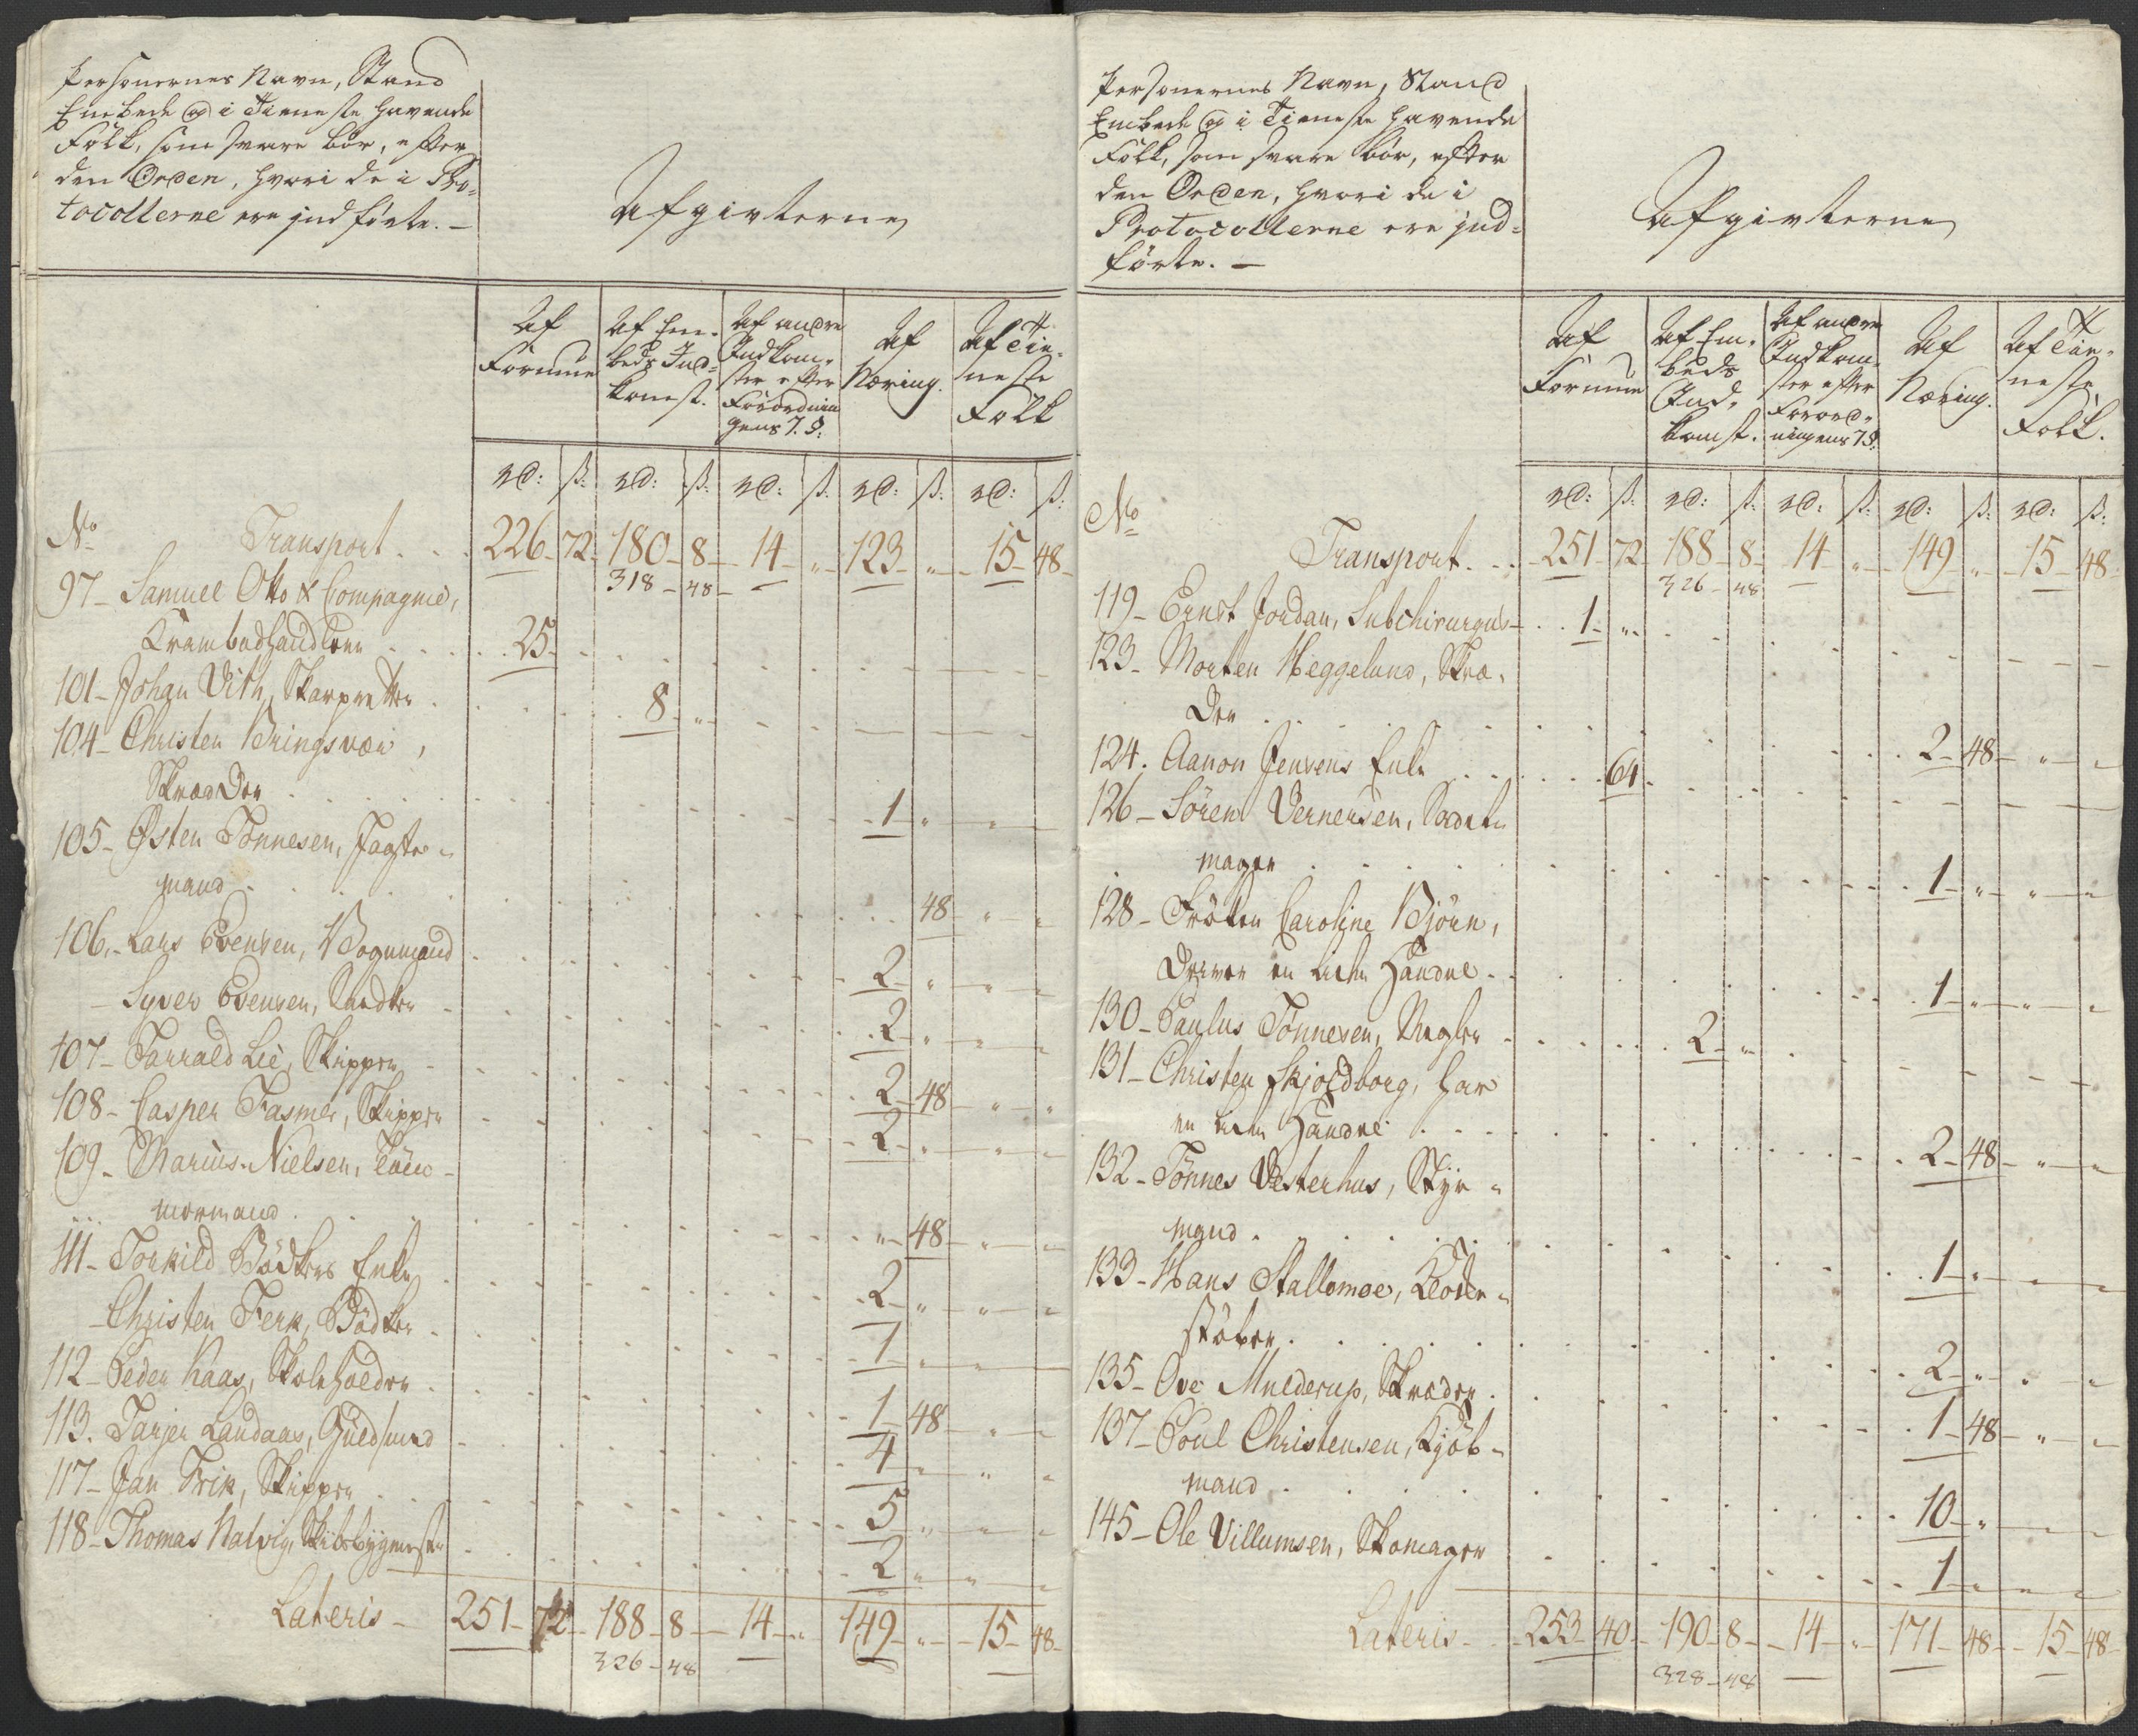 Personernes Navn, Stand
Embede og i Tieneste havende
Folk, som svare bör, efter
den Orden, hvori de i Pro-
tocollerne ere jndförte. -
Afgivterne
Af Formue
Af Em- beds Ind- komst.
Af andre Indkom- ster efter Forordnin gens 7. §:
Af Næring.
Af Tie- neste Folk
rd: ß: rd: ß: rd: ß: rd: ß: rd: ß:
No Transport . . . 226 - 72 - 180 - 8 - 14 - " - 123 - " - 15 - 48 -
318 - 48 -
97 - Samuel Otto & Compagnie,
Krambodhandlere . . . 25 -
101 - Johan Vith, Skarpretter . 8 - "
104 - Christen Bringsvær,
Skrædder . . . 1 - " - " -
105 - Østen Tönnesen, Jagte-
mand . . . 48 - " - "
106. - Lars Evensen, Vognmand . 2 - " - " - "
- Syver Evensen, Snedker - 2 - " - " - "
107 - Tarrald Lie, Skipper - 2 - 48 - " - "
108 - Casper Fasmer, Skipper 2 - " - " - "
109 - Marius Nielsen, Töm-
mermand . . . " - 48 - " - "
111 - Torkild Bödkers Enke . 2 - " - " - "
- Christen Ferk, Bödker . 1 - " - " -
112 - Peder Kaas, Skoleholder . 1 - 48 - " - "
113. Tarjer Landaas, Guldsmed - 4 - " - "
117 - Jan Frik, Skipper . . 5 - " - " - "
118 - Thomas Natvig, Skibsbygmester 2 - " - " - "
Lateris - 251 - 72 - 188 - 8 - 14 - " 149 - " - 15 - 48 -
326 - 48
Personernes Navn, Stand
Embede og i Tieneste havende
Folk, som svare bör, efter
den Orden, hvori de i
Protocollerne ere jnd-
förte. -
Afgivterne
Af Formue
Af Em- beds Ind- komst.
Af andre Indkom- ster efter Forord- ningens 7 §:
Af Næring.
Af Tie- neste Folk.
rd: ß: rd: ß: rd: ß: rd: ß: rd: ß:
No
Transport . . . 251 - 72 - 188 - 8 - 14 - " - 149 - " - 15 - 48 -
326 - 48
119 - Ernst Jordan, Subchirurgus - . . 1 - "
123 - Morten Heggelund, Skræ-
der . . . 2 - 48 - " - "
124. Aanon Jensens Enke . . . 64 -
126 - Sören Vernersen,
mager . . . 1 - " - " - "
128 - Fröken Caroline Björn,
Driver en liden Handel . . 1 - " - " - "
130 - Paulus Tönnesen, Megler . . 2 - "
131 - Christen Skjoldborg, har
en liden Handel . . . 2 - 48 - " - "
132 - Tönnes Vesterhus, Styr-
mand . . . 1 - " - -
133 - Hans Stallemoe, Klokke-
stöber . . . 2 - " - " - "
135 - Ove Mulderup, Skræder . 1 - 48 - " - "
137 - Poul Christensen, Kjöb-
mand . . . 10 - " - - "
145 - Ole Villumsen, Skomager 1 - " - - "
Lateris - 253 - 40 - 190 - 8 - 14 - " - 171 - 48 - 15 - 48 -
328 - 48